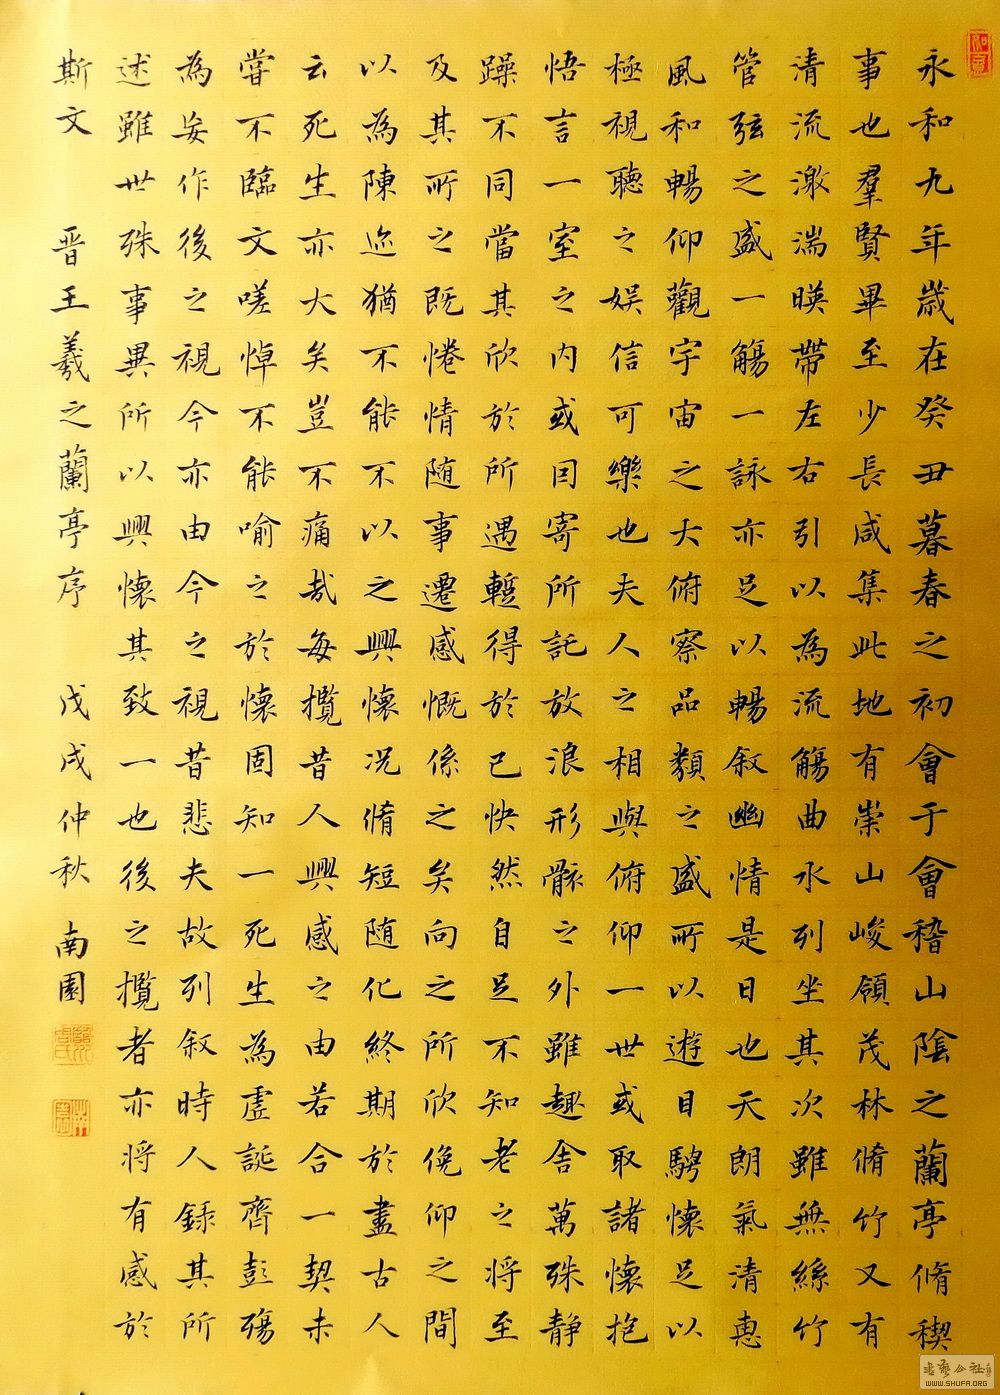 如意
永和九年歲在癸丑暮春之初會于會稽山陰之蘭亭脩稧
事也羣賢畢至少長咸集此地有崇山峻領茂林脩竹又有
清流激湍暎帶左右引以為流觴曲水列坐其次雖無絲竹
管弦之盛一觴一詠亦足以暢叙幽情是日也天朗氣清惠
風和暢仰觀宇宙之大俯察品類之盛所以遊目騁懷足以
極視聽之娛信可樂也夫人之相與俯仰一世或取諸懷抱
悟言一室之内或因寄所託放浪形骸之外雖趣舍萬殊静
躁不同當其欣於所遇暫得於己快然自足不知老之将至
及其所之既惓情随事遷感慨係之矣向之所欣俛仰之間
以為陳迹猶不能不以之興懷況脩短随化終期於盡古人
云死生亦大矣豈不痛哉每攬昔人興感之由若合一契未
嘗不臨文嗟悼不能喻之於懷固知一死生為虛誕齊彭殤
為妄作後之視今亦由今之視昔悲夫故列叙時人録其所
述雖世殊事異所以興懷其致一也後之攬者亦将有感於
斯文 晋王羲之蘭亭序 戊戌仲秋 南園
南園
書藝公社
WWW.SHUFA.ORG